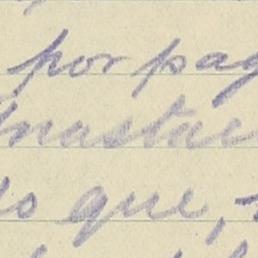 por pag
nastac
os que, -